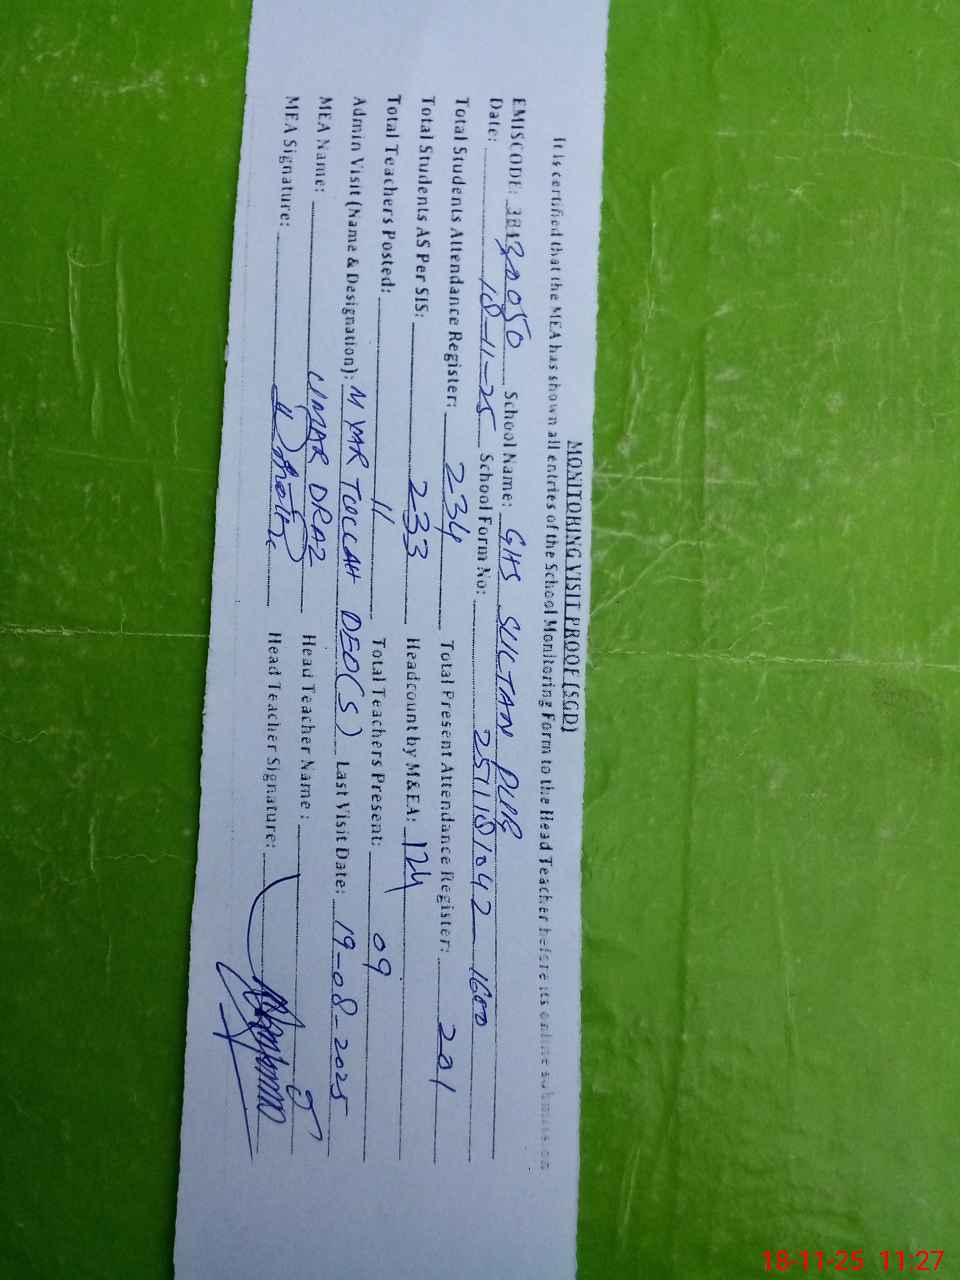 MONITORING VISIT PROOF (SGD)
It is certified that the MEA has shown all entries of the School Monitoring Form to the Head Teacher before its online submission
EMISCODE: 38430050 School Name: GHS SULTAN PUR
Date: 18-11-25 School Form No: 2511181042-1600
Total Students Attendance Register: 234 Total Present Attendance Register: 201
Total Students AS Per SIS: 233 Headcount by M&EA: 124
Total Teachers Posted: 11 Total Teachers Present: 09
Admin Visit (Name & Designation): M YAR TULLAH DEO(S) Last Visit Date: 19-08-2025
MEA Name: UMAR DRAZ Head Teacher Name:
MEA Signature: Head Teacher Signature:
18-11-25 11:27